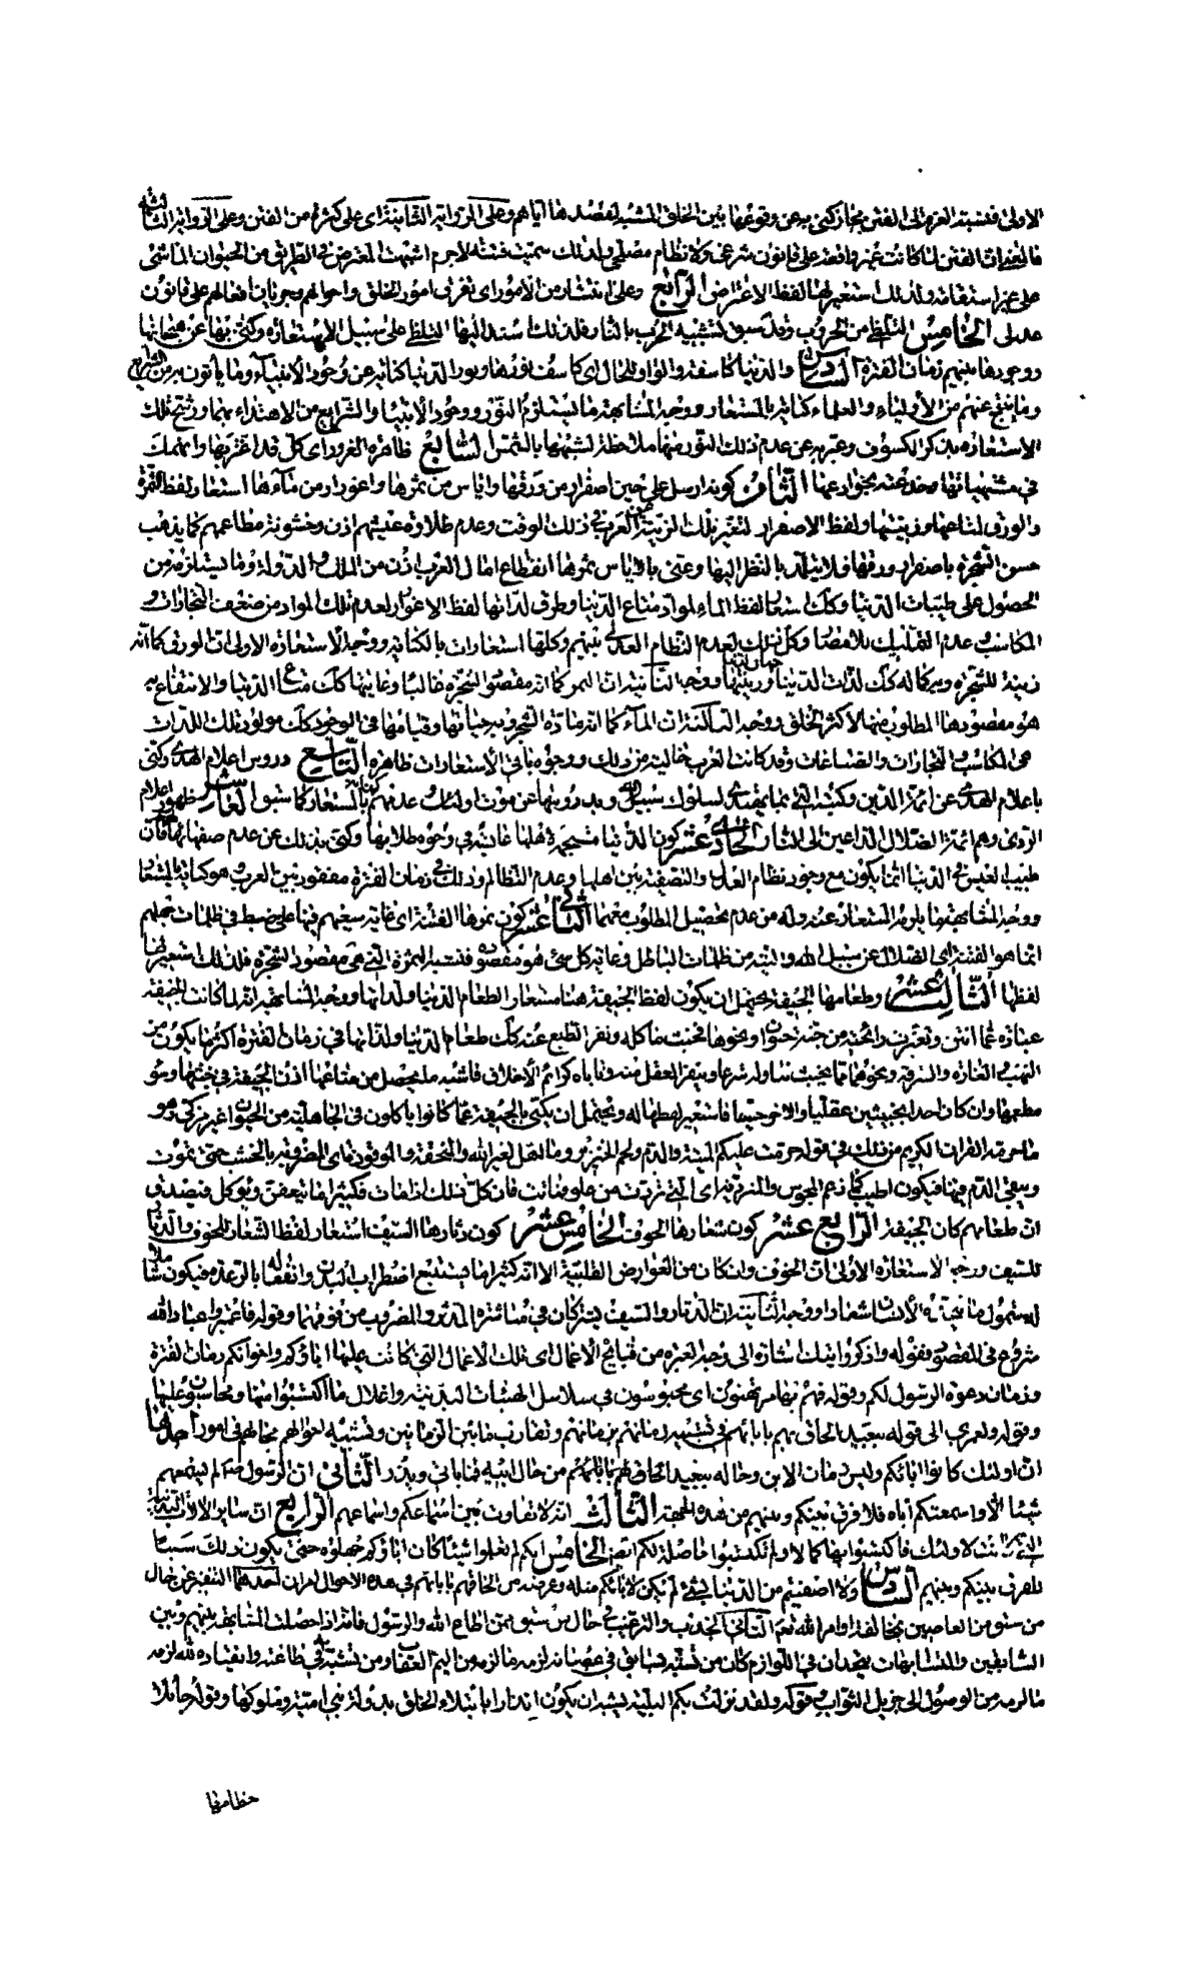 الاولى فنسبة العزم الى الفتن مجاز كنى به عن وقوعها بين الخلق المشبه لقصدها اياهم وعلى الرواية الثانية اى على كثرة من الفتن وعلى الرواية الثالثة
فالمعنى ان الفتن لما كانت غير واقعة على قانون شرعى ولا نظام مصلحى ولذلك سميت فتنة لا جرم اشبهت المعترض فى الطريق من الحيوان الماشى
على غير استقامة ولذلك استعير لها لفظ الاعتراض الرابع وعلى انتشار من الامور اى تفرق امور الخلق واحوالهم وجريان افعالهم على قانون
عدلى الخامس التلظى من الحروب وقد سبق تشبيه الحرب بالنار فلذلك اسند اليها التلظى على سبيل الاستعارة وكنى بها عن هيجانها
ووجودها بينهم زمان الفترة السادس والدنيا كاسفة والواو للحال اى كاسف نورها ونور الدنيا كناية عن وجود الانبياء وما يأتون به من الشرايع
وما ينتج عنهم من الأولياء والعلماء كناية بالمستعار ووجه المشابهة ما يستلزم النور ووجود الانبياء والشرايع من الاهتداء بهما ورشح تلك
الاستعارة بذكر الكسوف وعبر به عن عدم ذلك النور منها ملاحظة لشبهها بالشمس السابع ظاهرة الغرور اى كل قد اغتر بها وانهمك
فى مشتهياتها بخدعته بخوادعها الثامن كونه ارسل على حين اصفرار من ورقها واياس من ثمرها واغورار من مآءها استعار لفظ الثمرة
والورق لمتاعها وزينتها ولفظ الاصفرار لتغير تلك الزينة عن العرب فى ذلك الوقت وعدم طلاوة عيشهم اذن وخشونة مطاعمهم كما يذهب
حسن الشجرة باصفرار ورقها فلا يتلذذ بالنظر اليها وعنى بالاياس من ثمرها انقطاع امال العرب اذن من الملك والدولة وما يستلزمه من
الحصول على طيبات الدنيا وكذلك استعار لفظ الماء لمواد متاع الدنيا وطرق لذاتها ولفظ الاغورار لعدم تلك المواد من ضعف التجارات و
المكاسب وعدم التمليك للامصار وكل ذلك لعدم النظام العدلى بينهم وكلها استعارات بالكناية ووجه الاستعارة الاولى ان الورق كما انه
زينة للشجرة وبه كماله كذلك لذات الدنيا وزينتها ووجه الثانية ان الثمر كما انه مقصود الشجرة غالبا وغايتها كذلك متاع الدنيا والانتفاع به
هو مقصودها المطلوب منها لاكثر الخلق ووجه الثالثة ان المآء كما انه مادة الشجر وبه حياتها وقيامها فى الوجود كذلك مواد تلك اللذات
هى المكاسب والتجارات والصناعات وقد كانت العرب خالية من ذلك ووجوه باقى الاستعارات ظاهرة التاسع دروس اعلام الهدى وكنى
باعلام الهدى عن ائمة الدين وكتبه التى بها يهتدى لسلوك سبيل الله وبدروسها عن موت اولئك وعدمهم كناية بالمستعار كما سبق العاشر ظهور اعلام
الردى وهم ائمة الضلال الداعين الى النار الحادى عشر كون الدنيا متجهمة لاهلها عابسة فى وجوه طلابها وكنى بذلك عن عدم صفائها لهم فان
طيب العيش فى الدنيا انما يكون مع وجود نظام العدل والتصفية بين اهلها وعدم التظالم وذلك فى زمان الفترة مفقود بين العرب وهو كناية بالمستعار
ووجه المشابهة ما يلزم المستعار عنه وله من عدم تحصيل المطلوب معهما الثانى عشر كون ثمرها الفتنة اى غاية سعيهم فيها على خبط فى ظلمات جهلهم
انما هو الفتنة اى الضلال عن سبيل الله والتيه من ظلمات الباطل وغاية كل شئ هو مقصوده فتشبه الثمرة التى هى مقصود الشجرة فلذلك استعير لها
لفظها الثالث عشر وطعامها الجيفة يحتمل ان يكون لفظ الجيفة هنا مستعار الطعام الدنيا ولذاتها ووجه المشابهة انه لما كانت الجيفة
عبارة عما انتن وتغيرت رائحته من جثة حيوان ونحوها فخبث ماكله ونفر الطبع عنه كذلك طعام الدنيا ولذاتها فى زمان الفترة اكثر ما يكون من
النهب والغارة والسرقة ونحوها مما يخبث تناوله شرعا وينفر العقل منه ويأباه كرائم الأخلاق فاشبه ما يحصل من متاعها اذن الجيفة فى خبثها وسوء
مطعمها وان كان احد الخبيثين عقليا والاخر حسيا فاستعير لفظها له ويحتمل ان يكنى بالجيفة عما كانوا ياكلون فى الجاهلية من الحيوان غير مذكى وهو
ما حرمه القران الكريم من ذلك فى قوله حرمت عليكم الميتة والدم ولحم الخنزير وما اهل لغير الله والمنخنقة والموقوذة اى المضروبة بالخشب حتى تموت
ويبقى الدم فيها فيكون اطيب كما زعم المجوس والمتردية اى التى تردت من علو فماتت فان كل ذلك اذا مات فكثيرا ما يتعفن ويؤكل فيصدق
ان طعامهم كان الجيفة الرابع عشر كون شعارها الخوف الخامس عشر كون دثارها السيف استعار لفظ الشعار للخوف والدثار
للسيف ووجه الاستعارة الأولى ان الخوف وان كان من العوارض القلبية الا انه كثيرا ما يستتبع اضطراب البدن وانفعاله بالرعدة فيكون شاملا
له شمول ما يتخذه الانسان شعارا ووجه الثانية ان الدثار والسيف يشتركان فى مباشرة المدثر والمضروب من فوقهما وقوله فاعتبروا عباد الله
شروع فى المقصود بقوله واذكروا تيك اشارة الى وجه العبرة من قبائح الاعمال اى تلك الاعمال التى كانت عليها اباؤكم واخوانكم زمان الفترة
وزمان دعوة الرسول لكم وقوله فهم بها مرتهنون اى محبوسون فى سلاسل الهيئات البدنية واغلال ما اكتسبوا منها ومحاسبون عليها
وقوله ولعمرى الى قوله ببعيد الحاق بهم بابائهم فى تشبيه زمانهم بزمانهم وتقارب ما بين الزمانين وتشبيه احوالهم بحالهم فى امور احدها
ان اولئك كانوا ابائكم وليس زمان الابن وحاله ببعيد الحاق لهم بابائهم من حال ابيه فياباني ويذر الثانى ان الرسول صلم لم يسمعهم
شيئا الا واسمعتكم اياه فلا فرق بينكم وبينهم من هذه الجهة الثالث انه لا تفاوت بين اسماعكم واسماعهم الرابع ان ساير الالات البدنية
التى كانت لاولئك فاكتسبوا بها كمالا ولم تكتسبوا حاصلة لكم ايضا الخامس انكم لم تعلموا شيئا كان اباؤكم جهلوه حتى يكون ذلك سببا
للفرق بينكم وبينهم السادس ولا اصفيتم من الدنيا بشئ لم يكن لابائكم مثله وغرضه من الحاقهم بابائهم فى هذه الاحوال امران احدهما التنفير عن حال
من سبق من العاصين بمخالفة اوامر الله نعم الثانى الجذب والترغيب فى حال من سبق ممن اطاع الله والرسول فانه اذا حصلت المشابهة بينهم وبين
السابقين والمتشابهات يتحدان فى اللوازم كان من تشبه بسابق فى عصيانه لزمه ما لزمه من اليم العقاب ومن تشبه به فى طاعته وانقياده لله لزمه
ما لزمه من الوصول الى جزيل الثواب وقوله ولقد نزلت بكم البلية يشبه ان يكون انذارا بابتلاء الخلق بدولة بنى امية وملوكها وقوله جائلا
خطامها